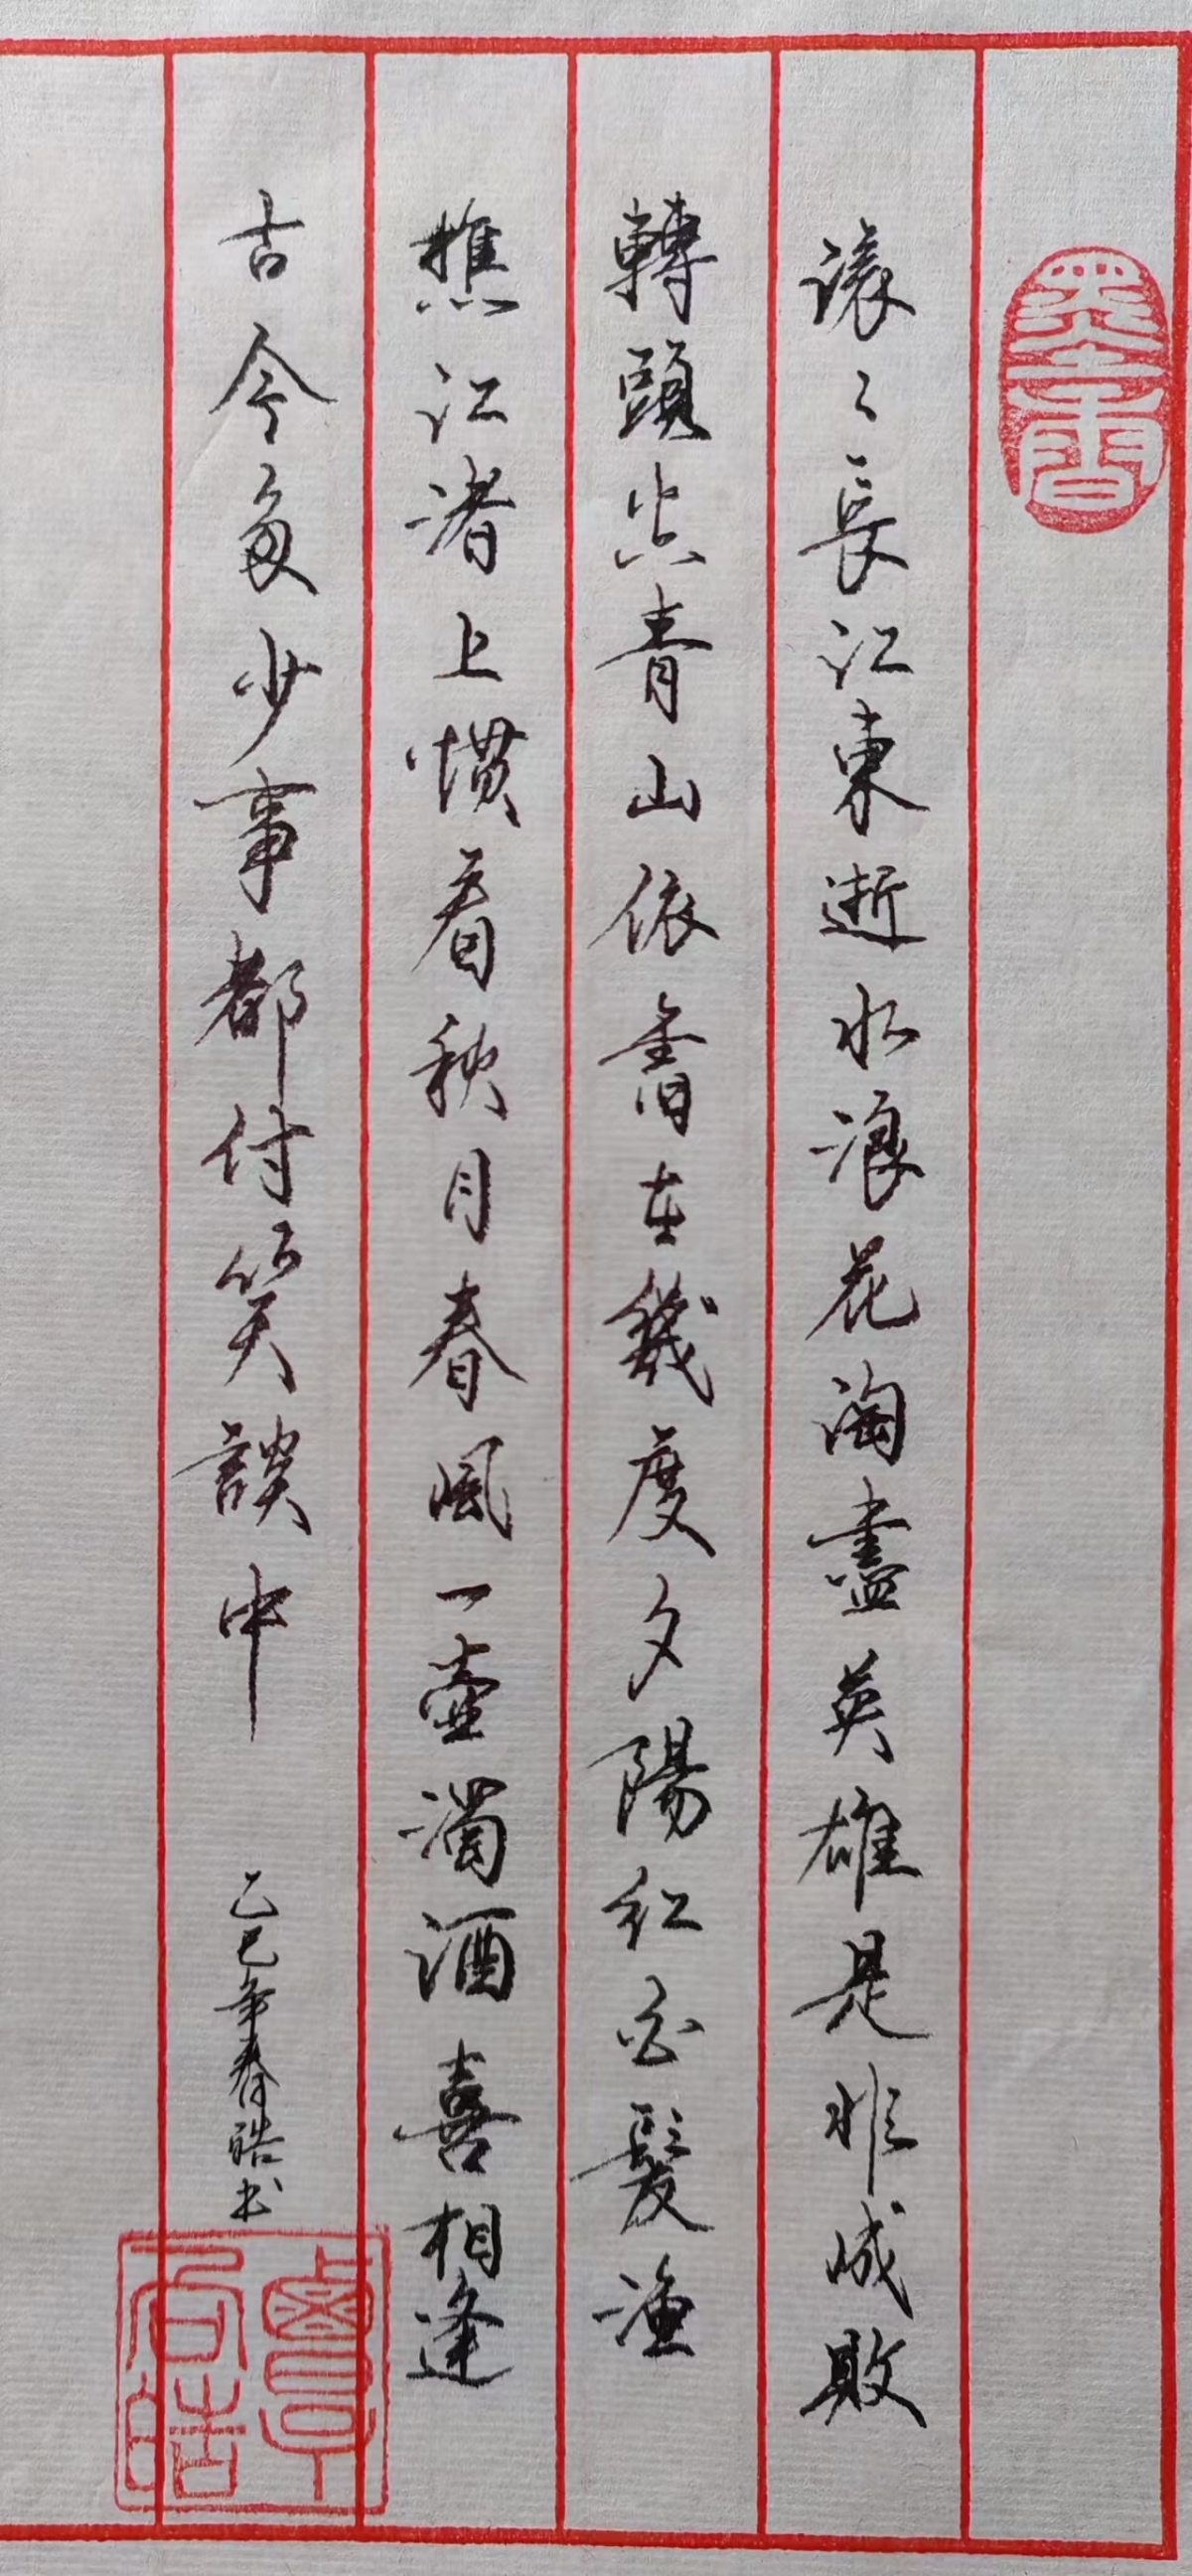 墨香
滾々長江東逝水浪花淘盡英雄是非成敗
轉頭空青山依舊在幾度夕陽紅白髮漁
樵江渚上慣看秋月春風一壺濁酒喜相逢
古今多少事都付笑談中
乙巳年春皓书